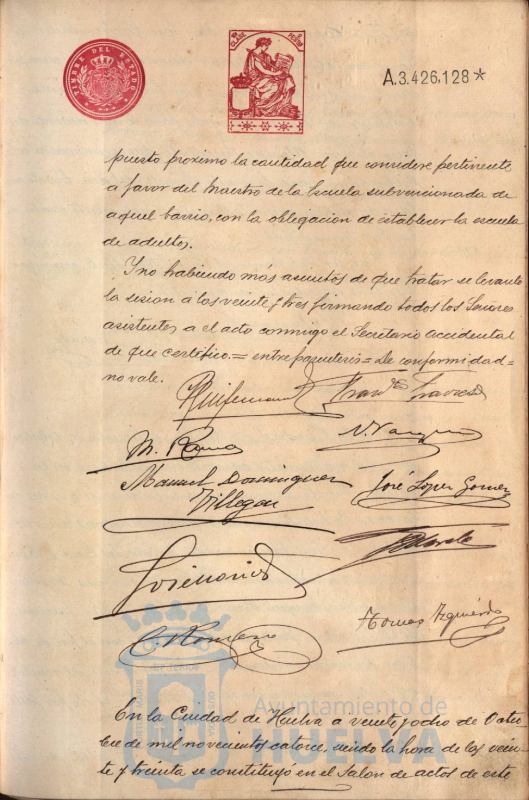 TIMBRE DEL ESTADO
CLASE
A.3.426,128*
puesto próximo la cantidad que considere pertinente
a favor del Maestro de la Escuela subvencionada de
aquel barrio, con la obligación de establecer la escuela
de adultos.
Y no habiendo más asuntos de que tratar se levantó
la sesión a las veinte y tres firmando todos los Señores
asistentes a el acto conmigo el Secretario accidental
de que certifico.= entre parentesis = De conformidad=
no vale.
M. Romo
Manuel Dominguez José López Gomez
Villegas
C. Romero Tomas Izquierdo
Ayuntamiento de
HUELVA
En la Ciudad de Huelva a veinte y ocho de Octu-
bre de mil novecientos catorce, siendo la hora de las vein-
te y treinta se constituyó en el Salon de actos de este